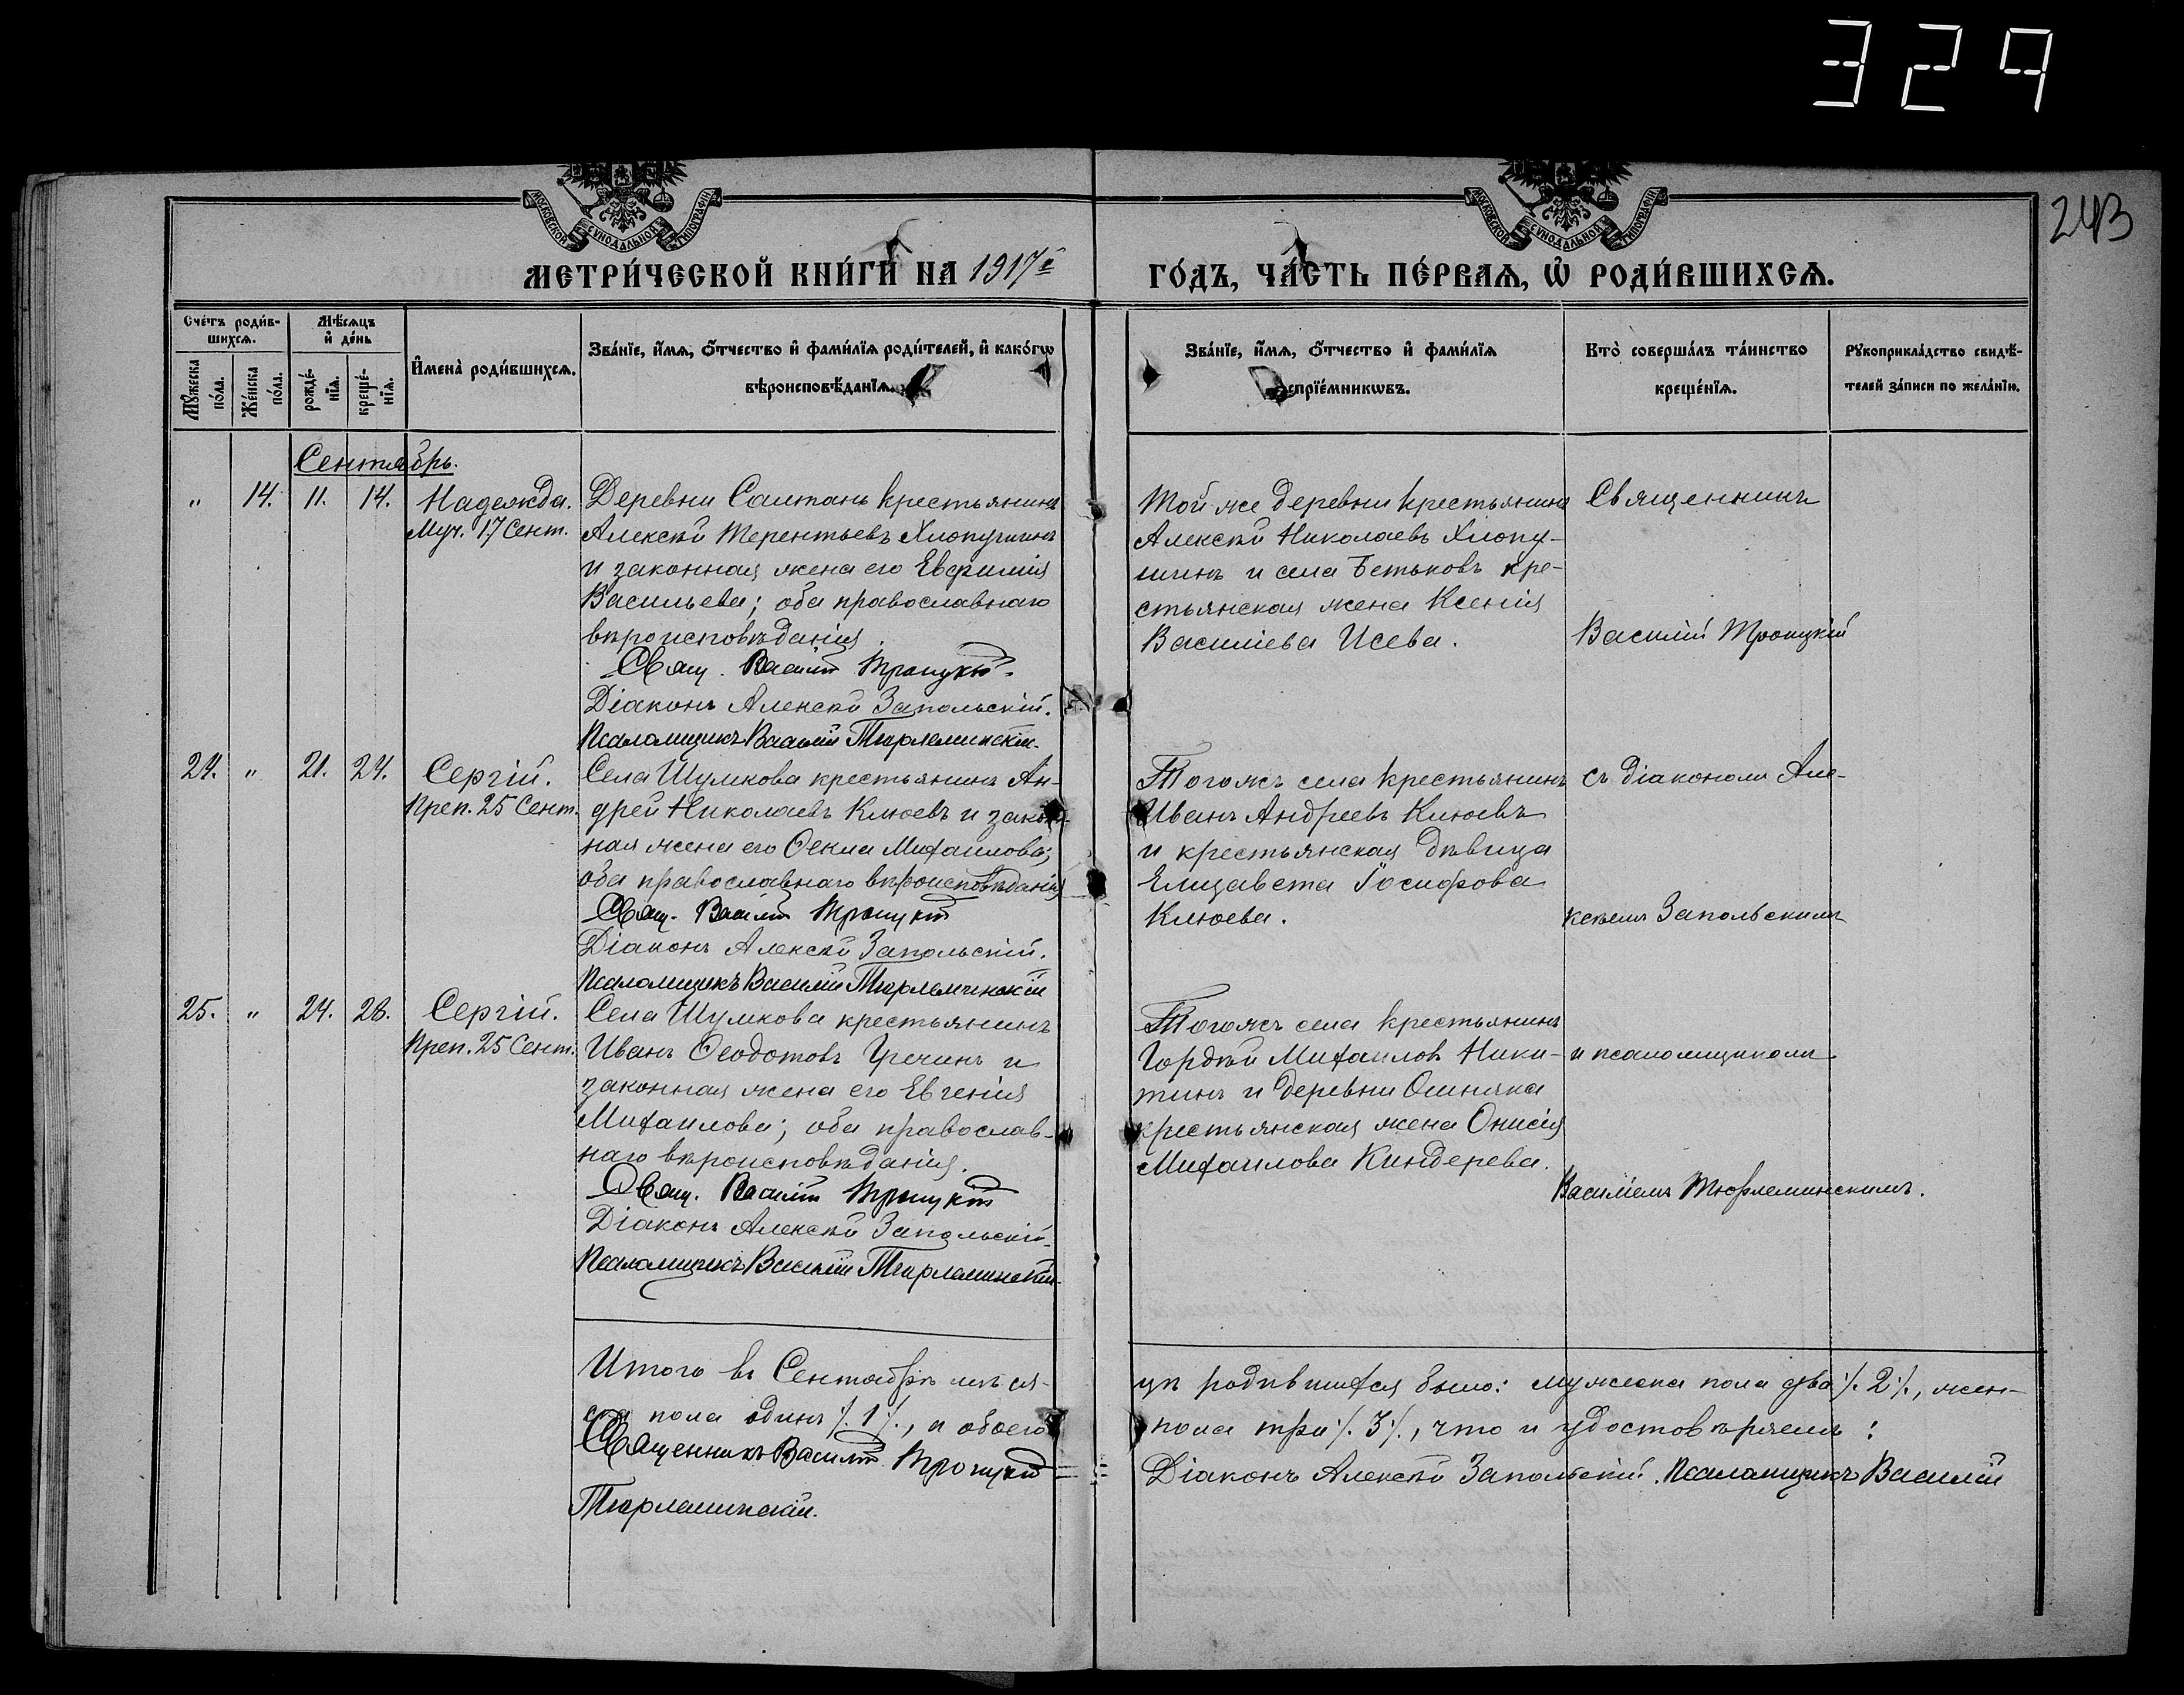 329
243
МОСКОВСКОЙ СѴНОДАЛЬНОЙ ТИПОГРАФІИ
МОСКОВСКОЙ СѴНОДАЛЬНОЙ ТИПОГРАФІИ
МЕТРИ́ЧЕСКОЙ КНИ́ГИ НА 1917й ГО́ДЪ, ЧА́СТЬ ПЕ́РВАѦ, Ѡ҆ РОДИ́ВШИХСѦ.
Сче́тъ роди́в-
шихсѧ.
Мѣ́сѧцъ
и҆ де́нь
Мꙋ́жеска
по́ла.
Же́нска
по́ла.
рожде́-
нїѧ.
креще́-
нїѧ.
И҆мена̀ роди́вшихсѧ.
Зва́нїе, и҆́мѧ, ѻ҆́тчество и҆ фами́лїѧ роди́телей, и҆ како́гѡ
вѣроисповѣ́данїѧ.
Зва́нїе, и҆́мѧ, ѻ҆́тчество и҆ фами́лїѧ
воспрїе́мникѡвъ.
Кто̀ соверша́лъ та́инство
креще́нїѧ.
Рꙋкоприкла́дство свидѣ́-
телей за́писи по жела́нїю.
Сентябрь.
" 14. 11. 14. Надежда.
Муч. 17 Сент.
Деревни Салтань крестьянинъ
Алексѣй Терентьевъ Хлопушинъ
и законная жена его Евфимія
Васильева; оба православнаго
вѣроисповѣданія.
Свящ. Василій Троицкій.
Діаконъ Алексѣй Запольскій.
Псаломщикъ Василій Тюрлеминскій.
Той же деревни крестьянинъ
Алексѣй Николаевъ Хлопу-
шинъ и села Бетьковъ кре-
стьянская жена Ксенія
Василіева Исева.
Священникъ
Василій Троицкій
24. " 21. 24. Сергій.
Преп. 25 Сент.
Села Шумкова крестьянинъ Ан-
дрей Николаевъ Клюевъ и закон-
ная жена его Ѳекла Михаилова;
оба православнаго вѣроисповѣданія
Свящ. Василій Троицкій
Діаконъ Алексѣй Запольскій.
Псаломщикъ Василій Тюрлеминскій
Тогожъ села крестьянинъ
Иванъ Андреевъ Клюевъ
и крестьянская дѣвица
Елизавета Іосифова
Клюева.
съ діакономъ Але-
ксѣемъ Запольскимъ
25. " 24. 28. Сергій.
Преп. 25 Сент.
Села Шумкова крестьянинъ
Иванъ Ѳеодотовъ Гречинъ и
законная жена его Евгенія
Михаилова; оба православ-
наго вѣроисповѣданія.
Свящ. Василій Троицкій
Діаконъ Алексѣй Запольскій.
Псаломщикъ Василій Тюрлеминскій.
Тогожъ села крестьянинъ
Гордѣй Михаиловъ Ники-
тинъ и деревни Олиняка
крестьянская жена Онисія
Михаилова Киндерева.
и псаломщикомъ
Василіемъ Тюрлеминскимъ.
Итого въ Сентябрѣ мѣся-
цѣ родившихся было: мужска пола два ./. 2 ./., жен-
ска пола одинъ ./. 1 ./., а обоего
пола три ./. 3 ./., что и удостовѣряемъ:
Священникъ Василій Троицкій
Діаконъ Алексѣй Запольскій. Псаломщикъ Василій
Тюрлеминскій.